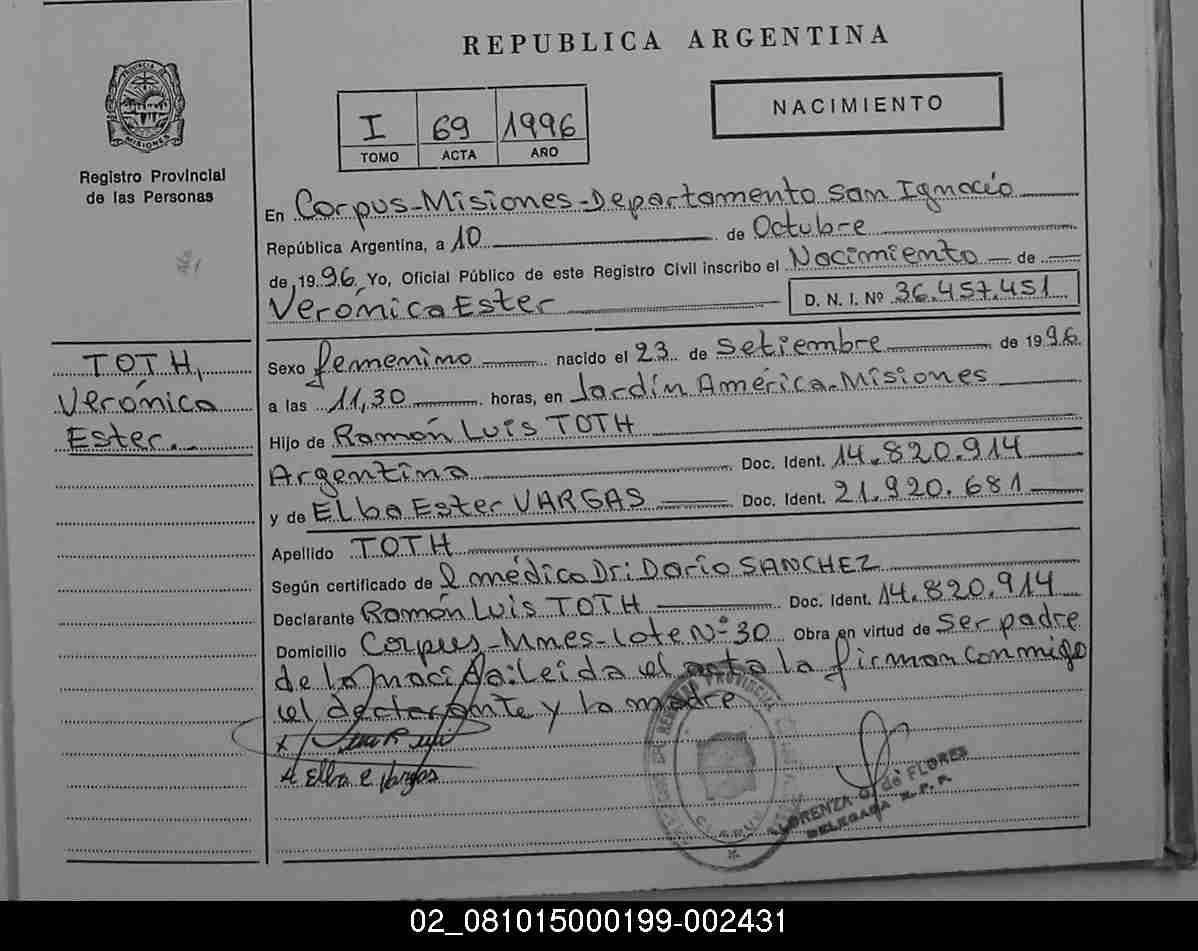 REPUBLICA ARGENTINA
PROVINCIA DE MISIONES
Registro Provincial
de las Personas
I 69 1996
TOMO ACTA AÑO
NACIMIENTO
En Corpus-Misiones-Departamento San Ignacio
República Argentina, a 10 de Octubre
de 1996. Yo, Oficial Público de este Registro Civil inscribo el Nacimiento de
Verónica Ester D. N. I. Nº 36.457.451
TOTH,
Verónica
Ester.
Sexo femenino nacido el 23 de Setiembre de 1996.
a las 11,30 horas, en Jardín América-Misiones
Hijo de Ramón Luis TOTH
Argentina Doc. Ident. 14.820.914
y de Elba Ester VARGAS Doc. Ident. 21.920.681
Apellido TOTH
Según certificado de l médico Dr: Darío SANCHEZ
Declarante Ramón Luis TOTH Doc. Ident. 14.820.914
Domicilio Corpus-Mnes-Lote Nº 30 Obra en virtud de ser padre
de la nacida: Leida el acta la firman conmigo
el declarante y la madre
Elba E Vargas
LORENZA G. de FLORES
DELEGADA R. P. P.
02_081015000199-002431